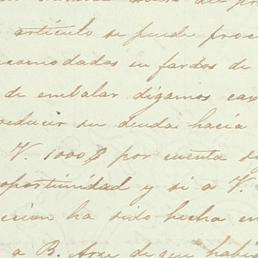 artículo se puede proce
acomodados en fardos de
de embalar digamos caj
reducir su deuda hacia
V. 1000 $ por cuenta d
oportunidad y si a V.
ción ha sido hecha en
a B. Arze de que habi